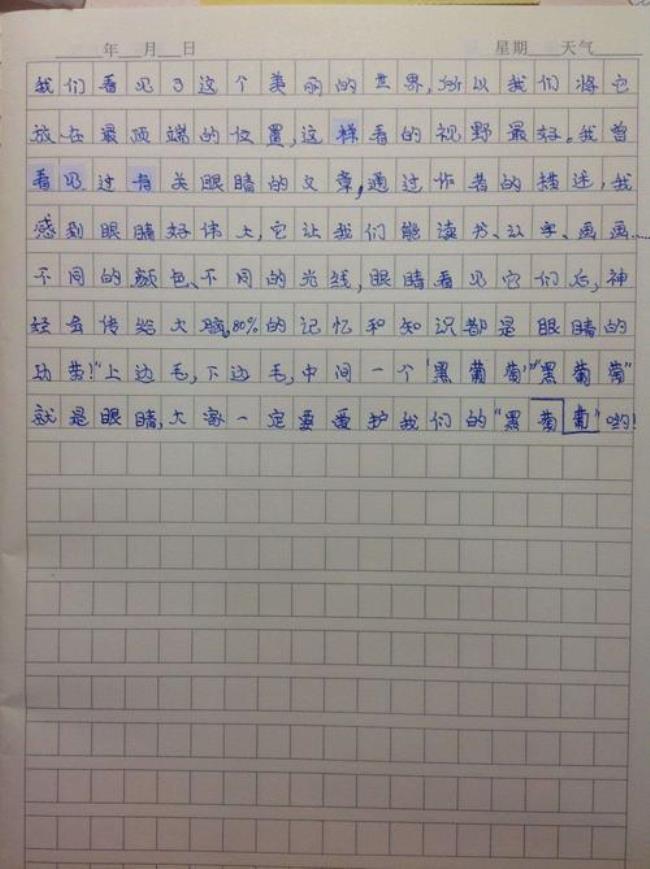 年 月 日 星期 天气
我们看见了这个美丽的世界,所以我们将它
放在最顶端的位置,这样看的视野最好。我曾
看见过有关眼睛的文章,通过作者的描述,我
感到眼睛好伟大,它让我们能读书、认字、画画……
不同的颜色、不同的光线,眼睛看见它们后,神
经会传给大脑,80%的记忆和知识都是眼睛的
功劳!"上边毛,下边毛,中间一个'黑葡萄'""黑葡萄"
就是眼睛,大家一定要爱护我们的"黑葡萄"哟!